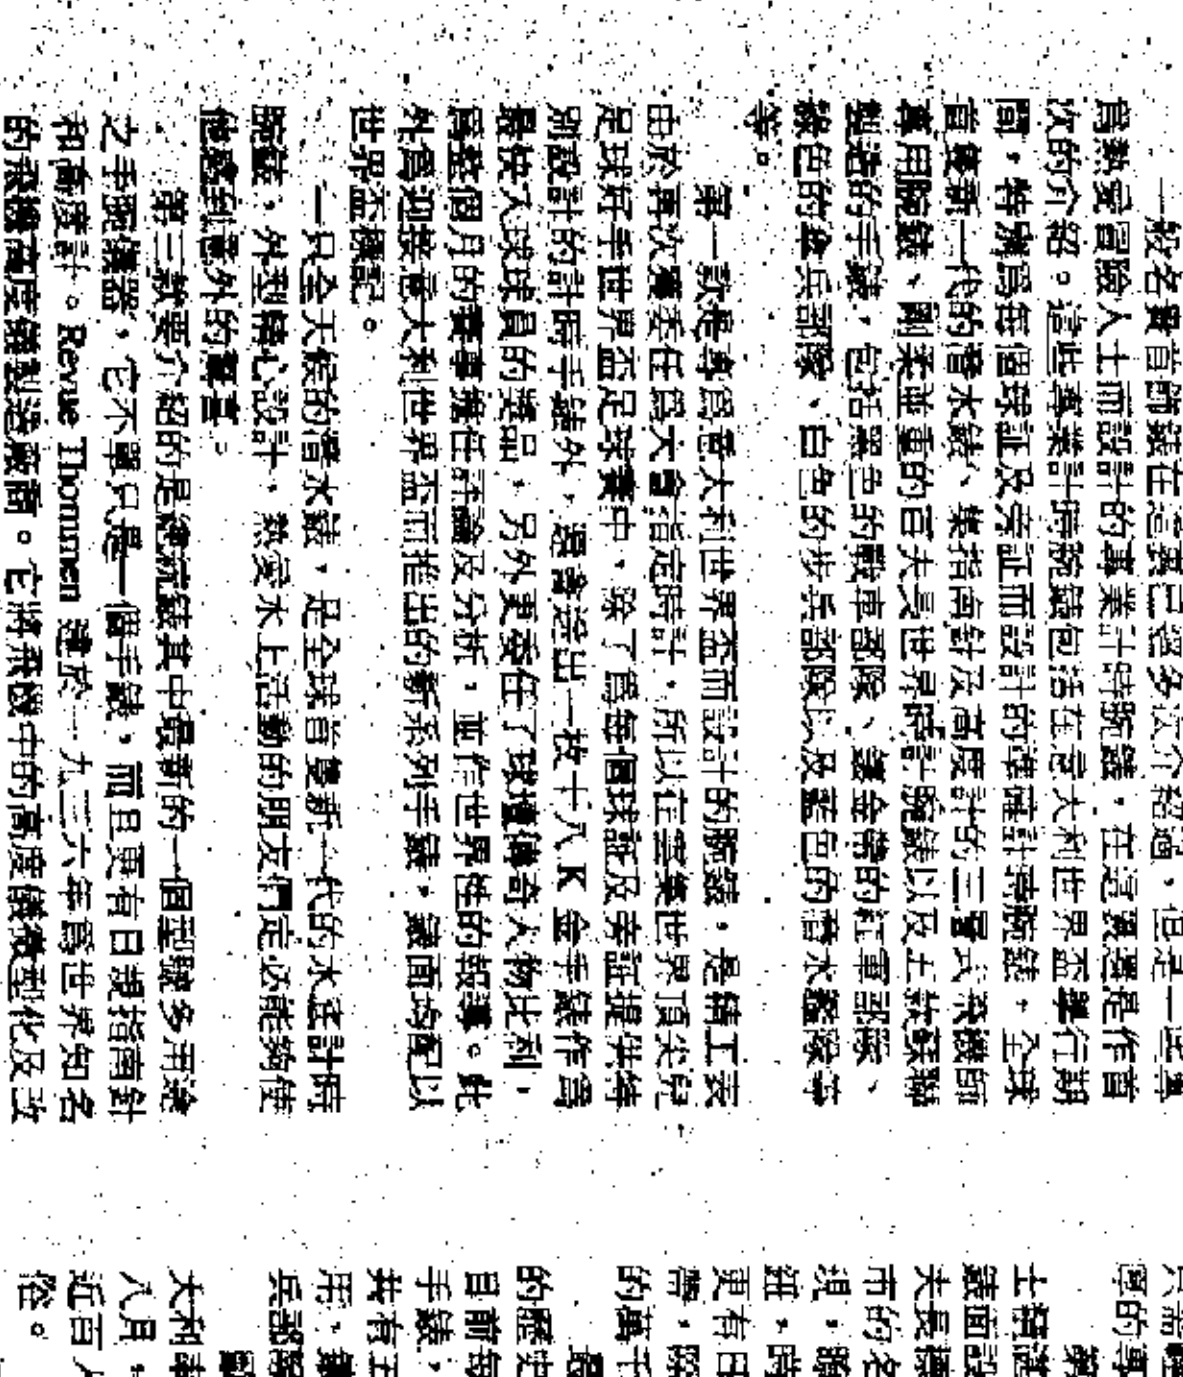 一般名貴首飾錶在這裏已經多次介紹過,但是一些專
爲熱愛冒險人士而設計的專業計時腕錶,在這裏還是作首
次的介紹。這些專業計時腕錶包括在意大利世界盃舉行期
間,特別爲每個球証及旁証而設計的準確計時腕錶,全球
首隻新一代的潛水錶、集指南針及高度計的三疊式飛機師
專用腕錶、剛柔並重的百夫長世界時計腕錶以及五款蘇聯
製造的手錶,包括黑色的戰車部隊、鍍金帶的紅軍部隊、
綠色的傘兵部隊、白色的步兵部隊以及藍色的潛水艦隊等
等。
第一款是專爲意大利世界盃而設計的腕錶,是精工表
由於再次獲委任爲大會指定時計,所以在雲集世界頂尖兒
足球好手世界盃足球賽中,除了爲每個球証及旁証提供特
別設計的計時手錶外,還會送出一枚十八K金手錶作爲
最快入球球員的獎品,另外更委任了球壇傳奇人物比利,
爲整個月的賽事擔任評論及分析,並作世界性的報導。此
外爲迎接意大利世界盃而推出的新系列手錶,錶面均配以
世界盃標記。
一只全天候的潛水錶,是全球首隻新一代的水底計時
腕錶,外型精心設計,熱愛水上活動的朋友們定必能夠使
他感到意外的驚喜。
第三款要介紹的是總統錶其中最新的一個型號多用途
之手腕儀器,它不單只是一個手錶,而且更有日規指南針
和高度計。Revue Thommen 建於一九三六年爲世界知名
的飛機高度錶製造廠商。它將飛機中的高度錶微型化及改
只需
學的專
第
士精選
錶面設
夫長標
市的名
現,腕
鈕,時
更有日
帶,腕
的萬千
最
的歷史
目前每
手錶,
共有五
用,錶
兵部隊
大利
入月,
近百人
俗。